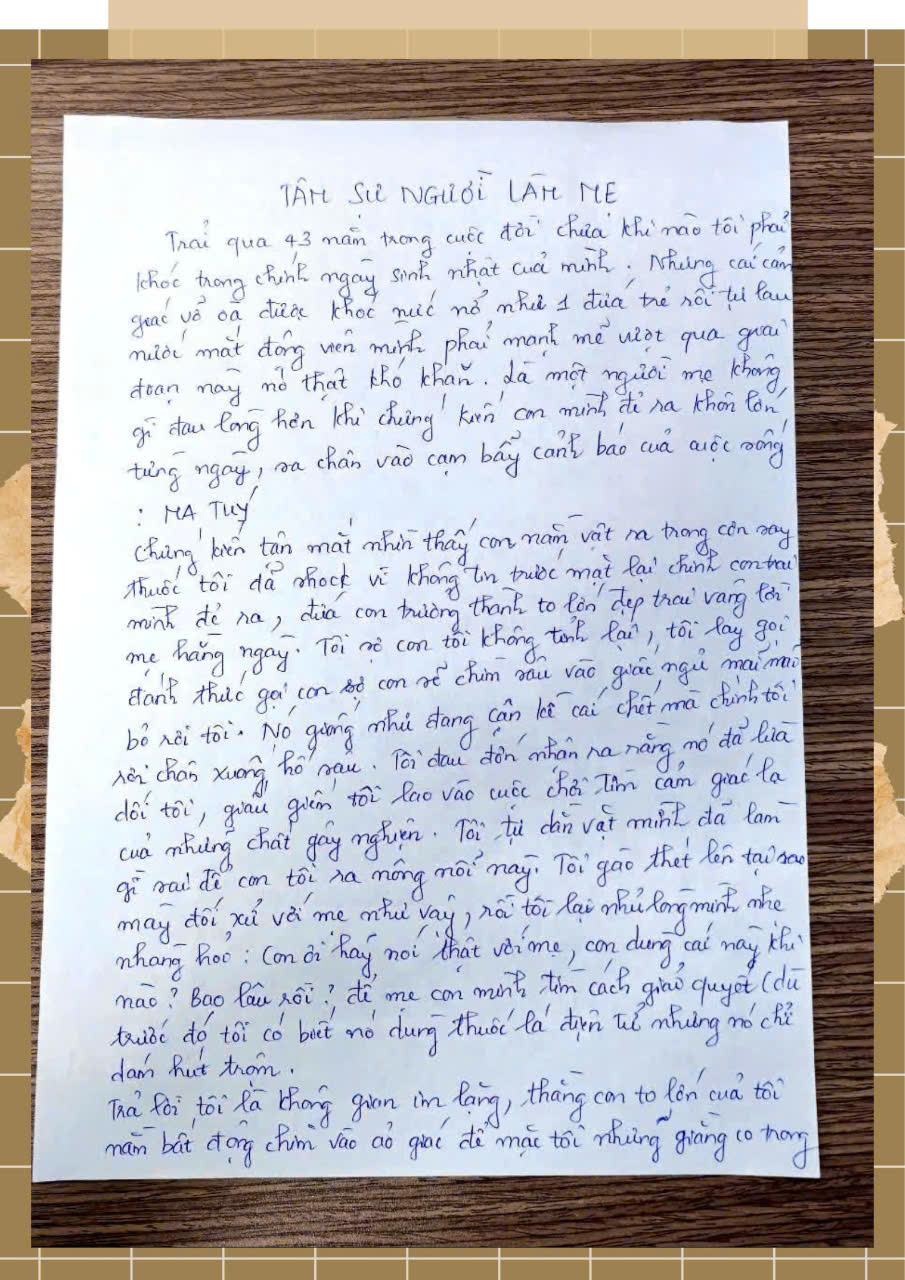 TÂM SỰ NGƯỜI LÀM MẸ
Trải qua 43 năm trong cuộc đời chưa khi nào tôi phải
khóc trong chính ngày sinh nhật của mình. Nhưng cái cảm
giác vỡ oà được khóc nức nở như 1 đứa trẻ rồi tự lau
nước mắt động viên mình phải mạnh mẽ vượt qua giai
đoạn này nó thật khó khăn. Là một người mẹ không
gì đau lòng hơn khi chứng kiến con mình đẻ ra khôn lớn
từng ngày, sa chân vào cạm bẫy cảnh báo của cuộc sống
: MA TUÝ
Chứng kiến tận mắt nhìn thấy con nằm vật ra trong cơn say
thuốc tôi đã shock vì không tin trước mặt lại chính con trai
mình đẻ ra, đứa con trưởng thành to lớn đẹp trai vâng lời
mẹ hằng ngày. Tôi sợ con tôi không tỉnh lại, tôi lay gọi
đánh thức gọi con sợ con sẽ chìm sâu vào giấc ngủ mãi mãi
bỏ rơi tôi. Nó giống như đang cận kề cái chết mà chính tôi
rơi chân xuống hố sâu. Tôi đau đớn nhận ra rằng nó đã lừa
dối tôi, giấu giếm tôi lao vào cuộc chơi tìm cảm giác lạ
của những chất gây nghiện. Tôi tự dằn vặt mình đã làm
gì sai để con tôi ra nông nỗi này. Tôi gào thét lên tại sao
mày đối xử với mẹ như vậy, rồi tôi lại nhủ lòng mình nhẹ
nhàng hỏi : Con ơi hãy nói thật với mẹ, con dùng cái này khi
nào? Bao lâu rồi? để mẹ con mình tìm cách giải quyết (dù
trước đó tôi có biết nó dùng thuốc lá điện tử nhưng nó chỉ
dám hút trộm.
Trả lời tôi là không gian im lặng, thằng con to lớn của tôi
nằm bất động chìm vào ảo giác để mặc tôi những giằng co trong